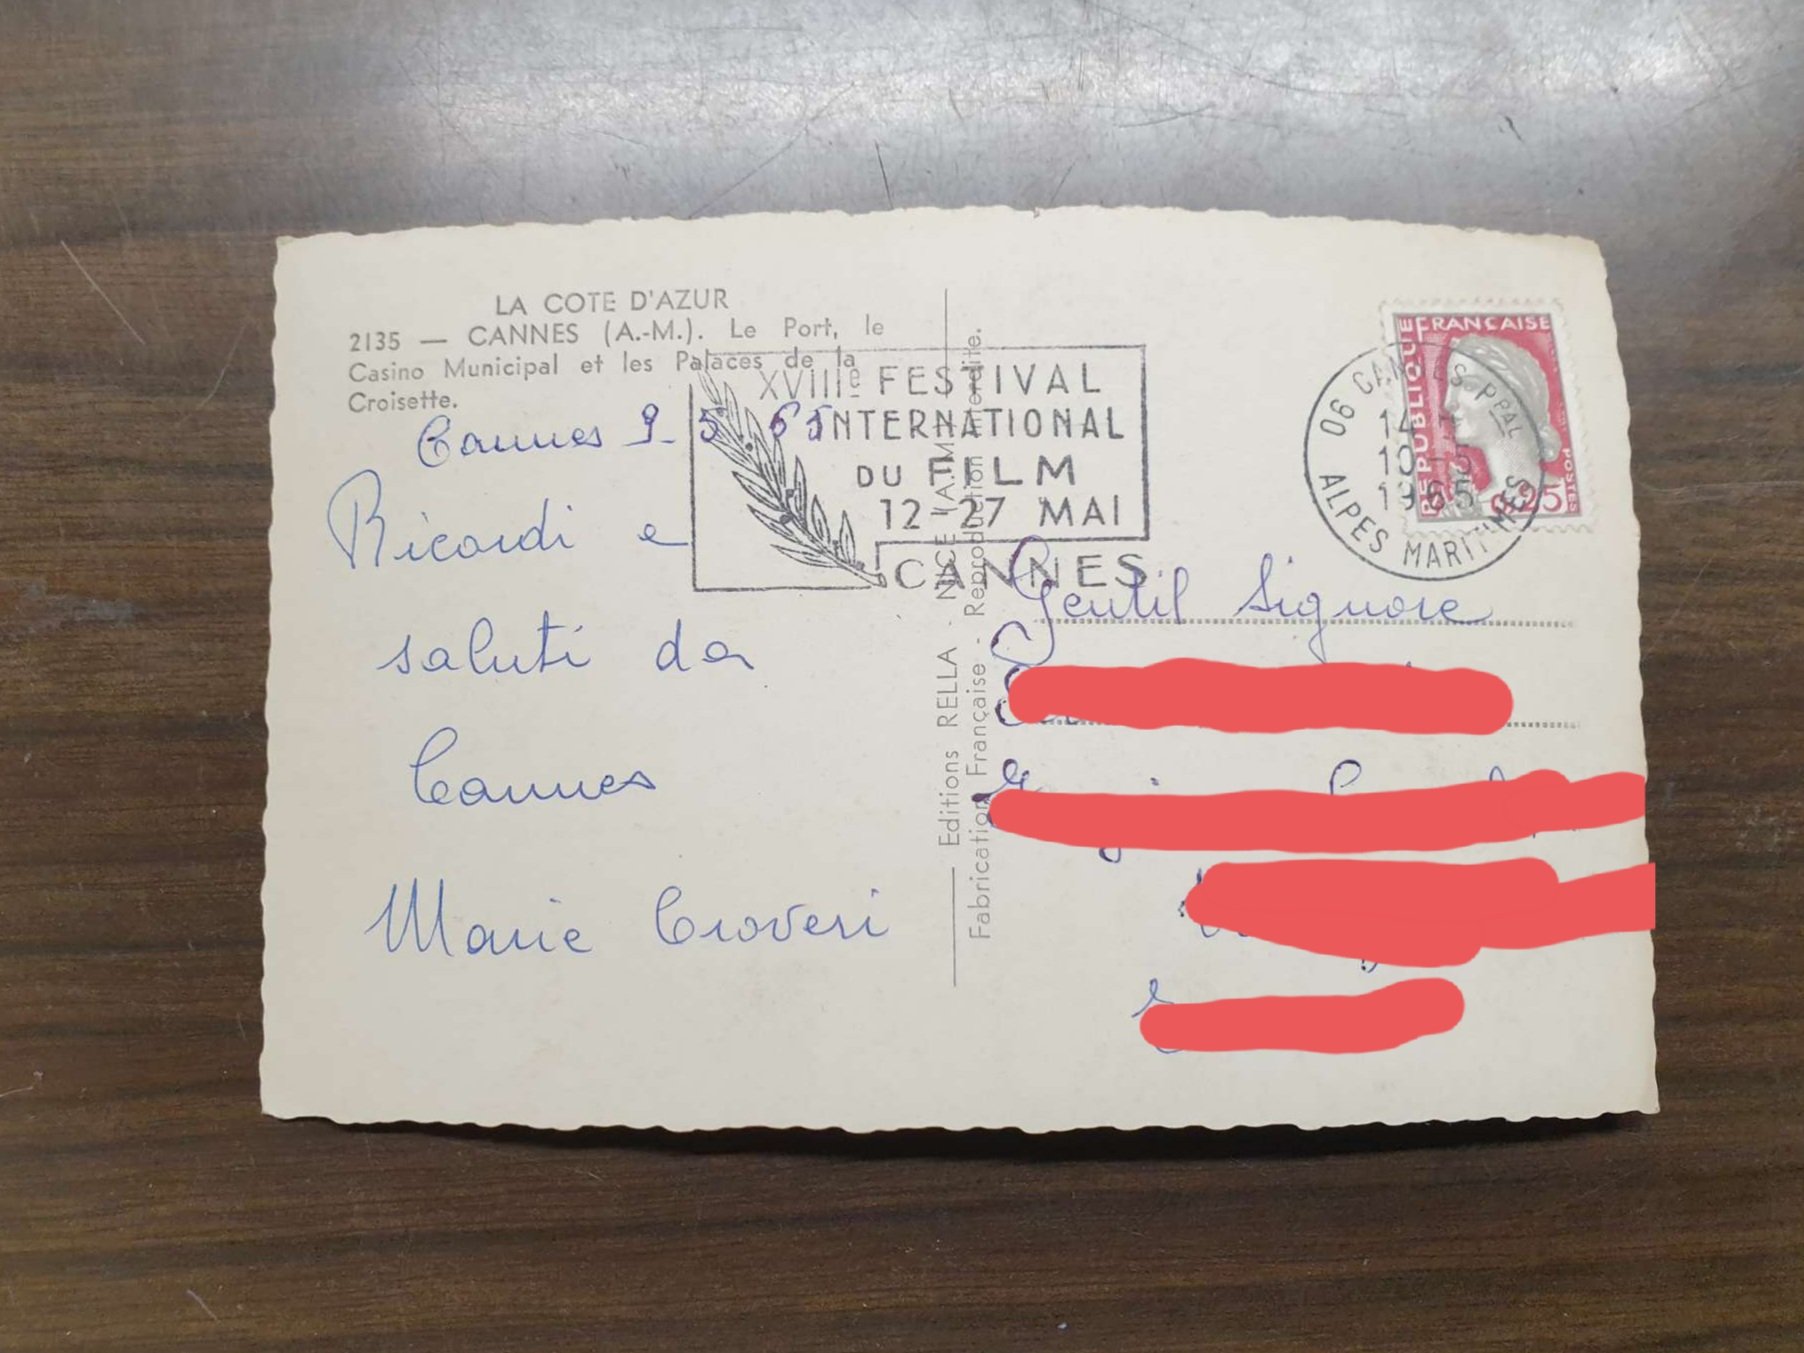 LA COTE D'AZUR
2135 — CANNES (A.-M.). Le Port, le
Casino Municipal et les Palaces de la
Croisette.
Cannes 9-5 65
Ricordi e
saluti da
Cannes
Marie Croveri
XVIIIe FESTIVAL
INTERNATIONAL
DU FILM
12-27 MAI
CANNES
Editions RELLA - NICE (A.M.)
Fabrication Française - Reproduction interdite.
REPUBLIQUE FRANÇAISE
0,25
POSTES
06 CANNES-PPAL
14
10-5
1965
ALPES MARITIMES
Gentil Signore